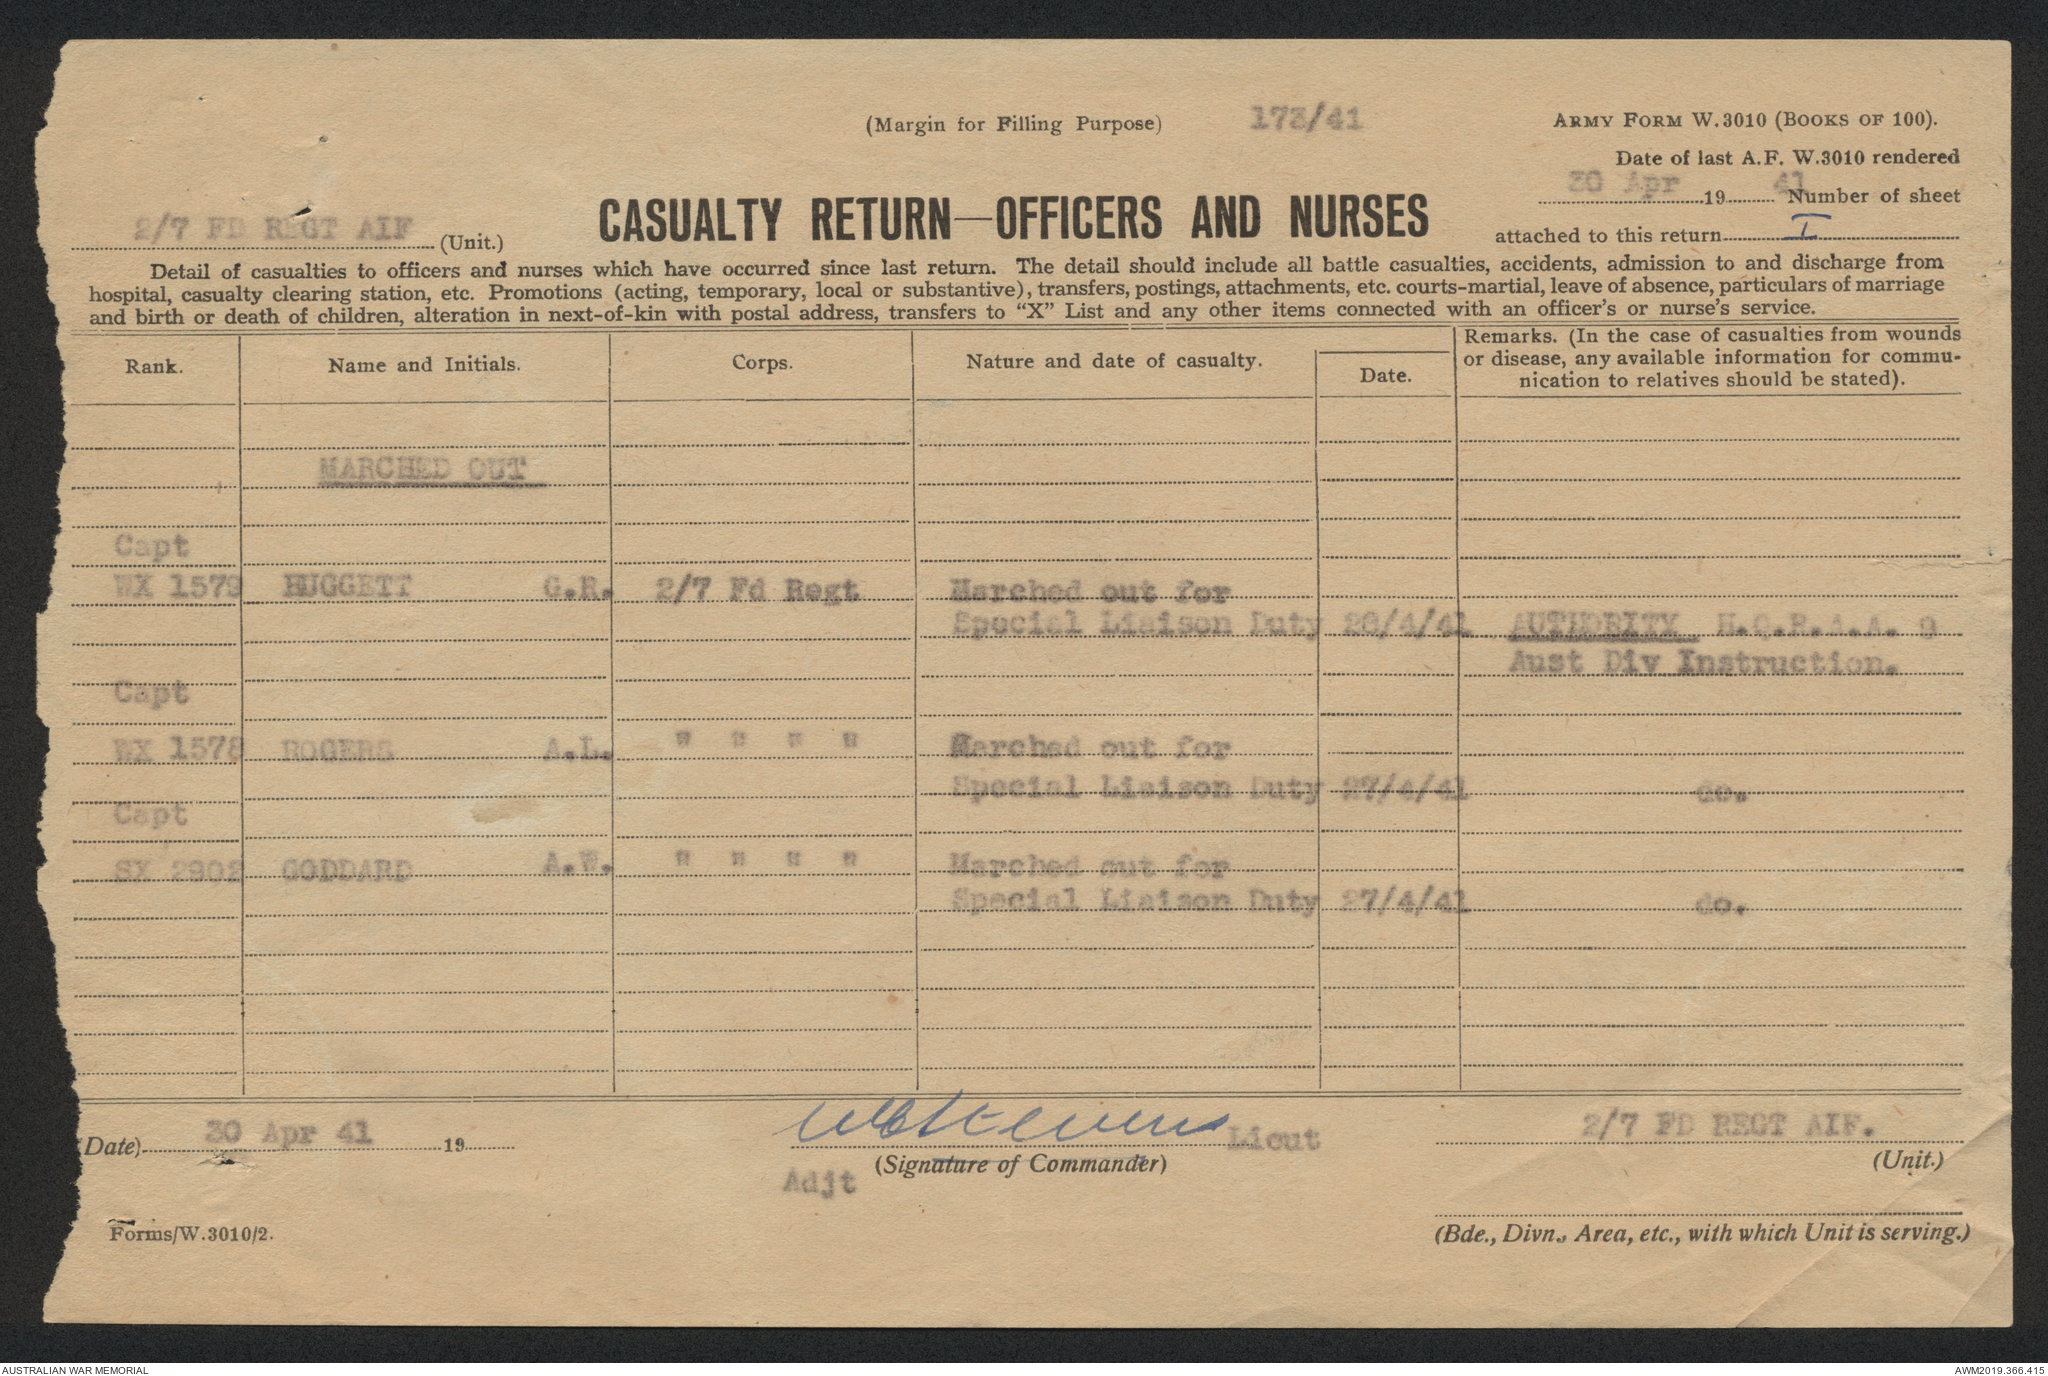 (Margin for Filling Purpose) 173/41 ARMY FORM W.3010 (BOOKS OF 100).
Date of last A.F. W.3010 rendered
30 Apr 19 41 Number of sheet
2/7 FD REGT AIF (Unit.) CASUALTY RETURN—OFFICERS AND NURSES attached to this return I
Detail of casualties to officers and nurses which have occurred since last return. The detail should include all battle casualties, accidents, admission to and discharge from
hospital, casualty clearing station, etc. Promotions (acting, temporary, local or substantive), transfers, postings, attachments, etc. courts-martial, leave of absence, particulars of marriage
and birth or death of children, alteration in next-of-kin with postal address, transfers to "X" List and any other items connected with an officer's or nurse's service.
Rank. Name and Initials. Corps. Nature and date of casualty. Date. Remarks. (In the case of casualties from wounds
or disease, any available information for commu-
nication to relatives should be stated).
MARCHED OUT
Capt
WX 1579 HUGGETT G.R. 2/7 Fd Regt Marched out for
Special Liaison Duty /4/41 AUTHORITY H.Q.R.A.A. 9
Aust Div Instruction.
Capt
WX 1578 ROGERS A.L. " " " " Marched out for
Special Liaison Duty 27/4/41 do.
Capt
SX 2902 GODDARD A.W. " " " " Marched out for
Special Liaison Duty 27/4/41 do.
(Date) 30 Apr 41 19 Stevens Lieut 2/7 FD REGT AIF.
(Signature of Commander) (Unit.)
Adjt
Forms/W.3010/2. (Bde., Divn., Area, etc., with which Unit is serving.)
AUSTRALIAN WAR MEMORIAL AWM2019.366.415